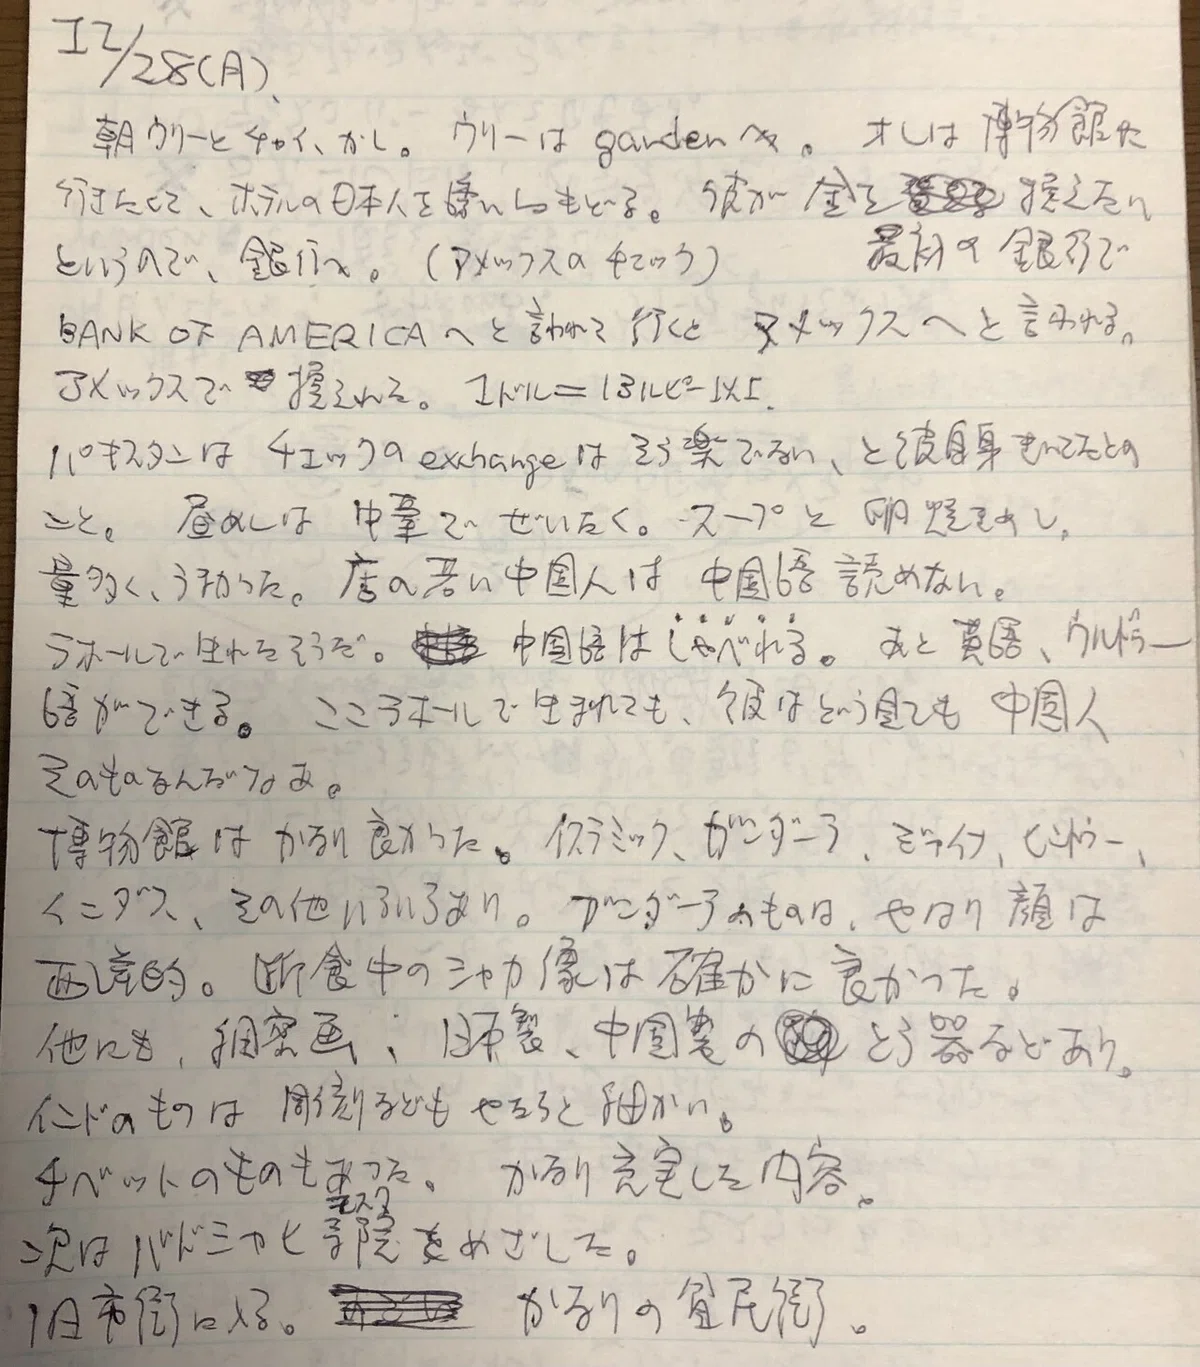 12/28(月)、
朝ウリーとチャイ、かし。 ウリーは gardenへ。 オレは博物館に
行きたくて、ホテルの日本人を誘いにもどる。 彼が金を 換えたい
というので、銀行へ。(アメックスのチェック) 最初の銀行で
BANK OF AMERICAへと言われて行くと アメックスへと言われる。
アメックスで 換えれた。 1ドル=13ルピー以上.
パキスタンは チェックのexchangeはそう楽でない、と彼自身きいてたとの
こと。 昼めしは 中華でぜいたく。スープと 卵焼きめし。
量多く、うまかった。店の若い中国人は 中国語読めない。
ラホールで生れたそうだ。 中国語はしゃべれる。 あと英語、ウルドゥー
語ができる。 ここラホールで生まれても、彼はどう見ても 中国人
そのものなんだなあ。
博物館はかなり良かった。 イスラミック、ガンダーラ、 ヒンドゥー、
インダス、その他いろいろあり。 ガンダーラのものは、やはり顔は
西洋的。 断食中のシャカ像は確かに良かった。
他にも、細密画、日本製、中国製の とう器などあり。
インドのものは 彫刻なども やたらと細かい。
チベットのものもあった。 かなり充実した内容。
次はバドシャヒ モスク をめざした。
旧市街に入る。 かなりの貧民街。